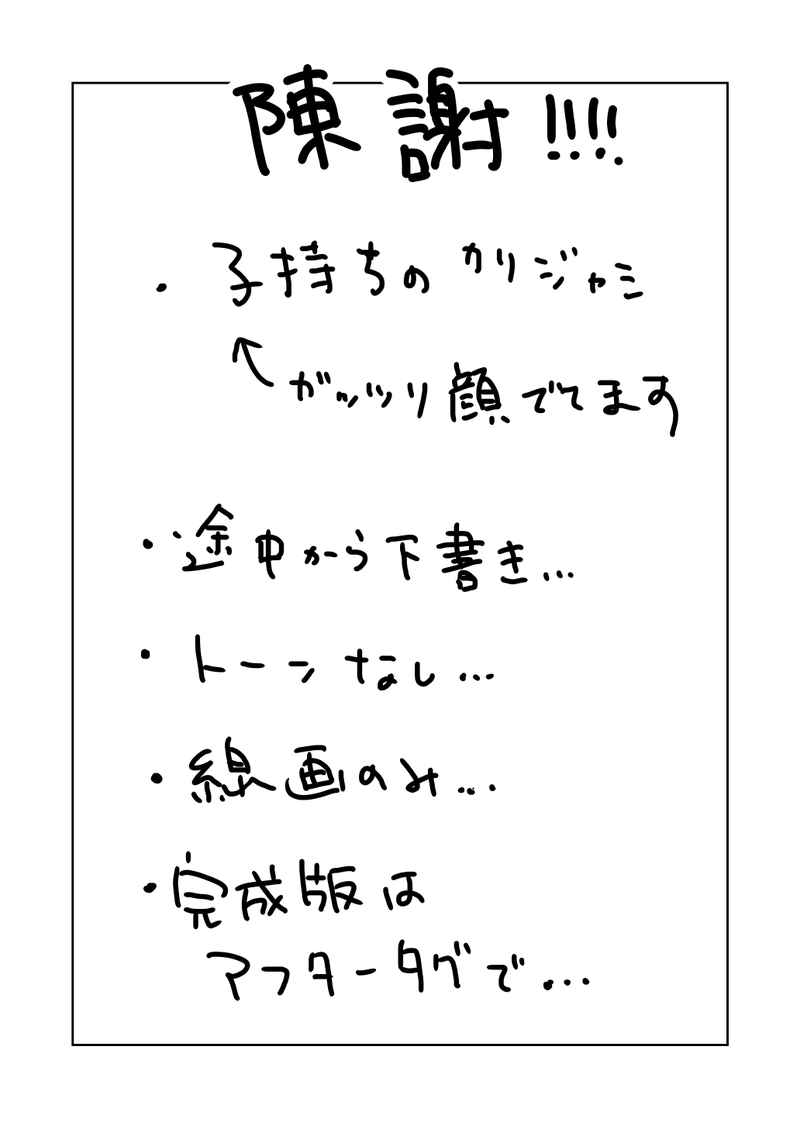 陳謝!!!!
・子持ちのカリジャミ
↖ガッツリ顔でてます
・途中から下書き...
・トーンなし...
・線画のみ...
・完成版は
アフタータグで...